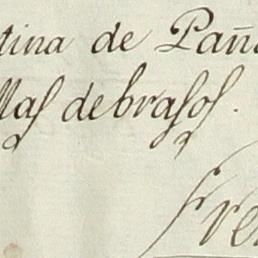 tina de Pañ
llas debrasos.
Fre